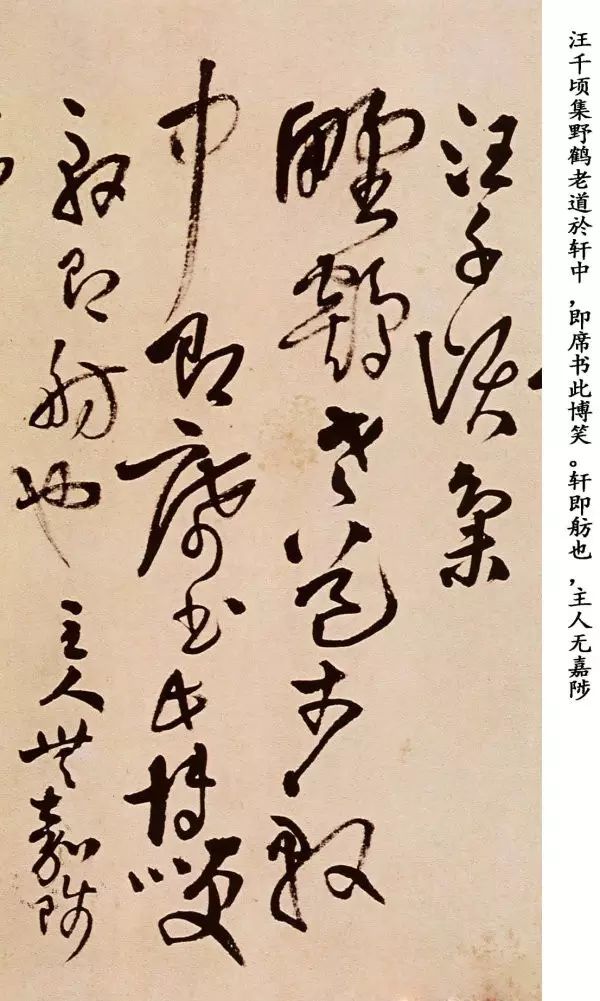 汪千顷集野鹤老道於轩中，即席书此博笑。轩即舫也，主人无嘉陟
汪千頃集
野鶴老道於軒
中即席書此博咲
軒即舫也主人無嘉陟